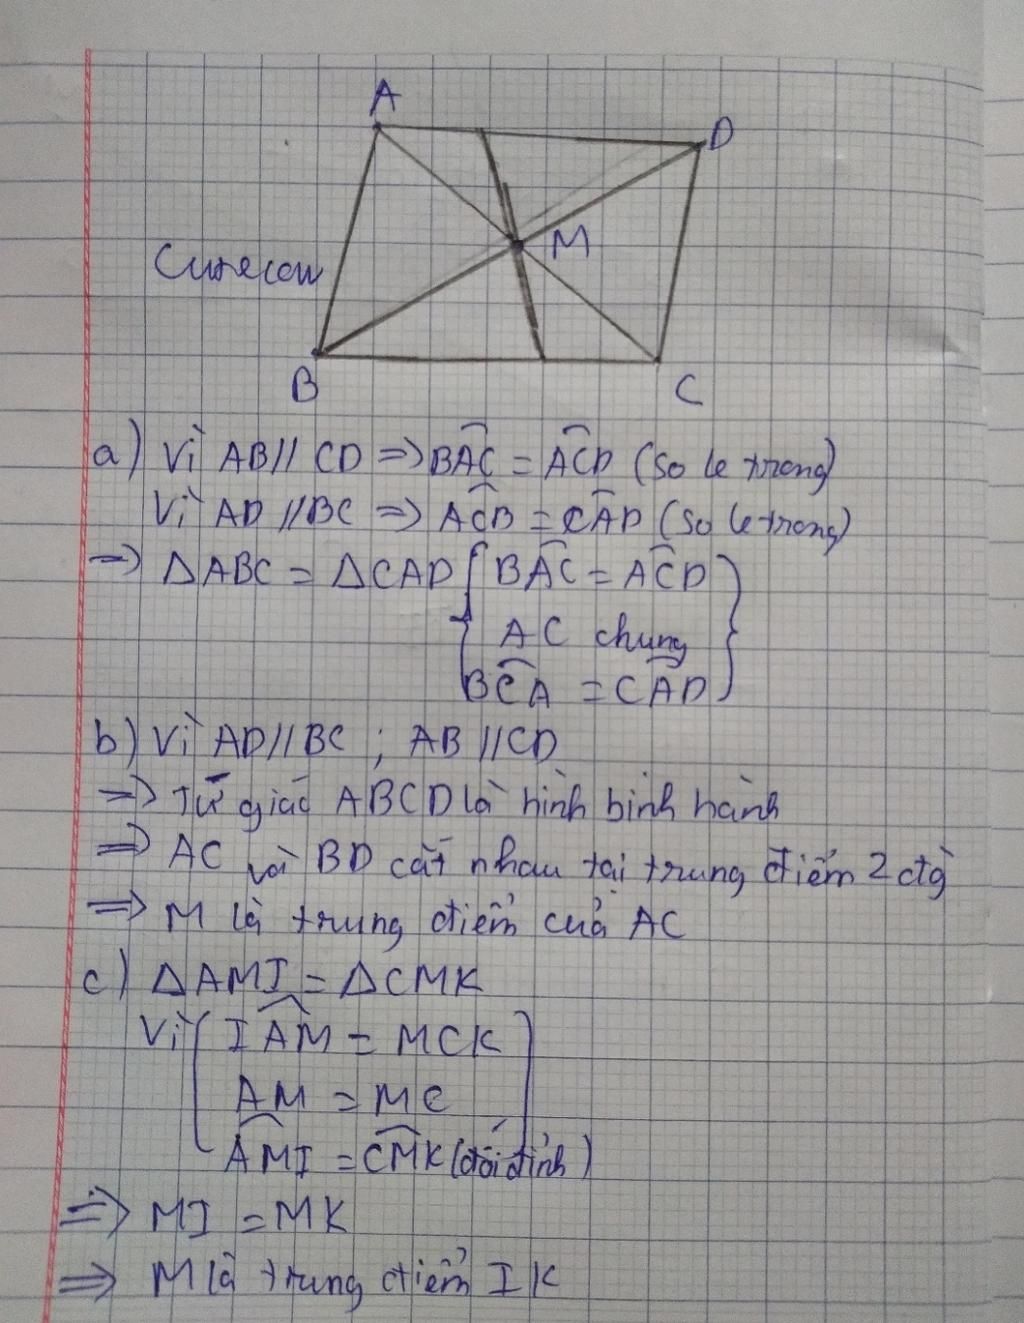 A
D
M
Curecow
B
C
a) Vì AB // CD => BAC^ = ACD^ (so le trong)
Vì AD // BC => ACB^ = CAD^ (so le trong)
=> ΔABC = ΔCAD { BAC^ = ACD^ }
AC chung
BCA^ = CAD^
b) Vì AD // BC ; AB // CD
=> Tứ giác ABCD là hình bình hành
=> AC và BD cắt nhau tại trung điểm 2 đg
=> M là trung điểm của AC
c) ΔAMI = ΔCMK
Vì IAM^ = MCK
AM = MC
AMI^ = CMK^ (đối đỉnh)
=> MI = MK
=> M là trung điểm IK